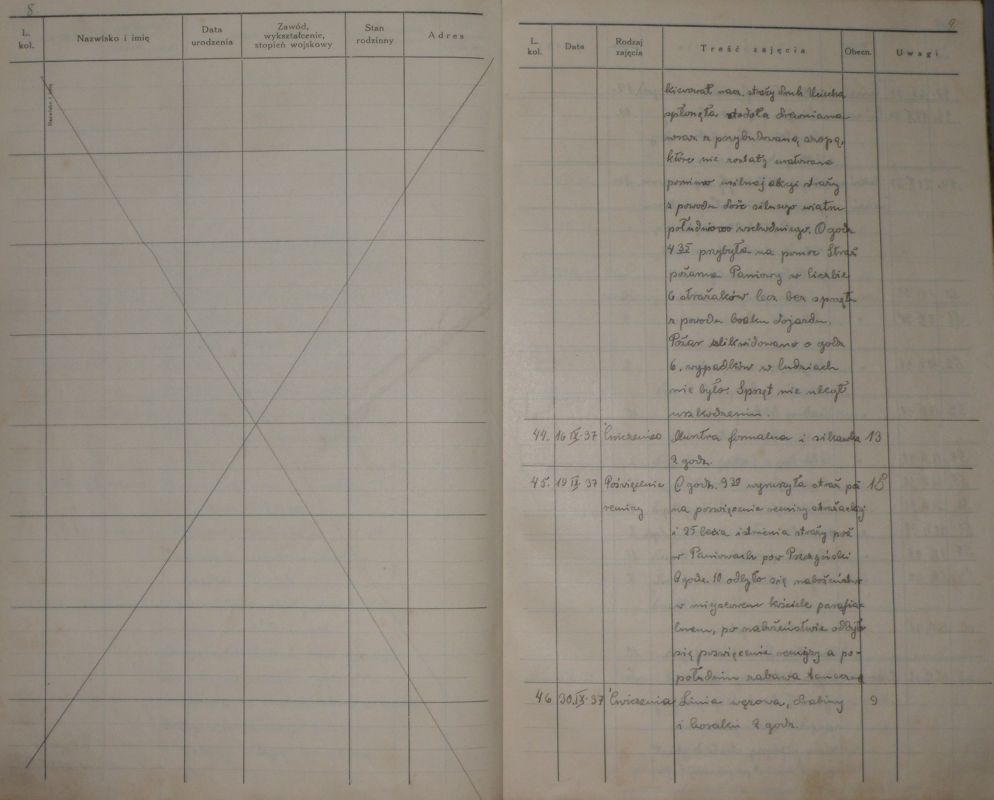 8
L. kol.
Nazwisko i imię
Data urodzenia
Zawód, wykształcenie, stopień wojskowy
Stan rodzinny
Adres
9
L. kol.
Data
Rodzaj zajęcia
Treść zajęcia
Obecn.
Uwagi
kierował nacz. straży druh
spłonęła stodoła drewniana
wraz z przybudowaną szopą,
które nie zostały uratowane
pomimo usilnej akcji straży
z powodu dość silnego wiatru
południowo wschodniego. O godz.
4 35 przybyła na pomoc Straż
pożarna Paniowy w liczbie
6 strażaków lecz bez sprzętu
z powodu braku dojazdu.
Pożar zlikwidowano o godz
6, wypadków w ludziach
nie było. Sprzęt nie uległ
uszkodzeniu.
44. 16 IX 37 Ćwiczenia Musztra formalna i sikawka 13
2 godz.
45. 19 IX 37 Poświęcenie O godz. 9 30 wyruszyła straż poż 18
remizy na poświęcenie remizy strażackiej
i 25 lecia istnienia straży poż
w Paniowach pow Pszczyński
O godz. 10 odbyło się nabożeństwo
w miejscowem kościele parafial-
nem, po nabożeństwie odbyło
się poświęcenie remizy a po-
południu zabawa taneczna
46 30.IX.37 Ćwiczenia Linia wężowa, drabiny 9
i 2 godz.